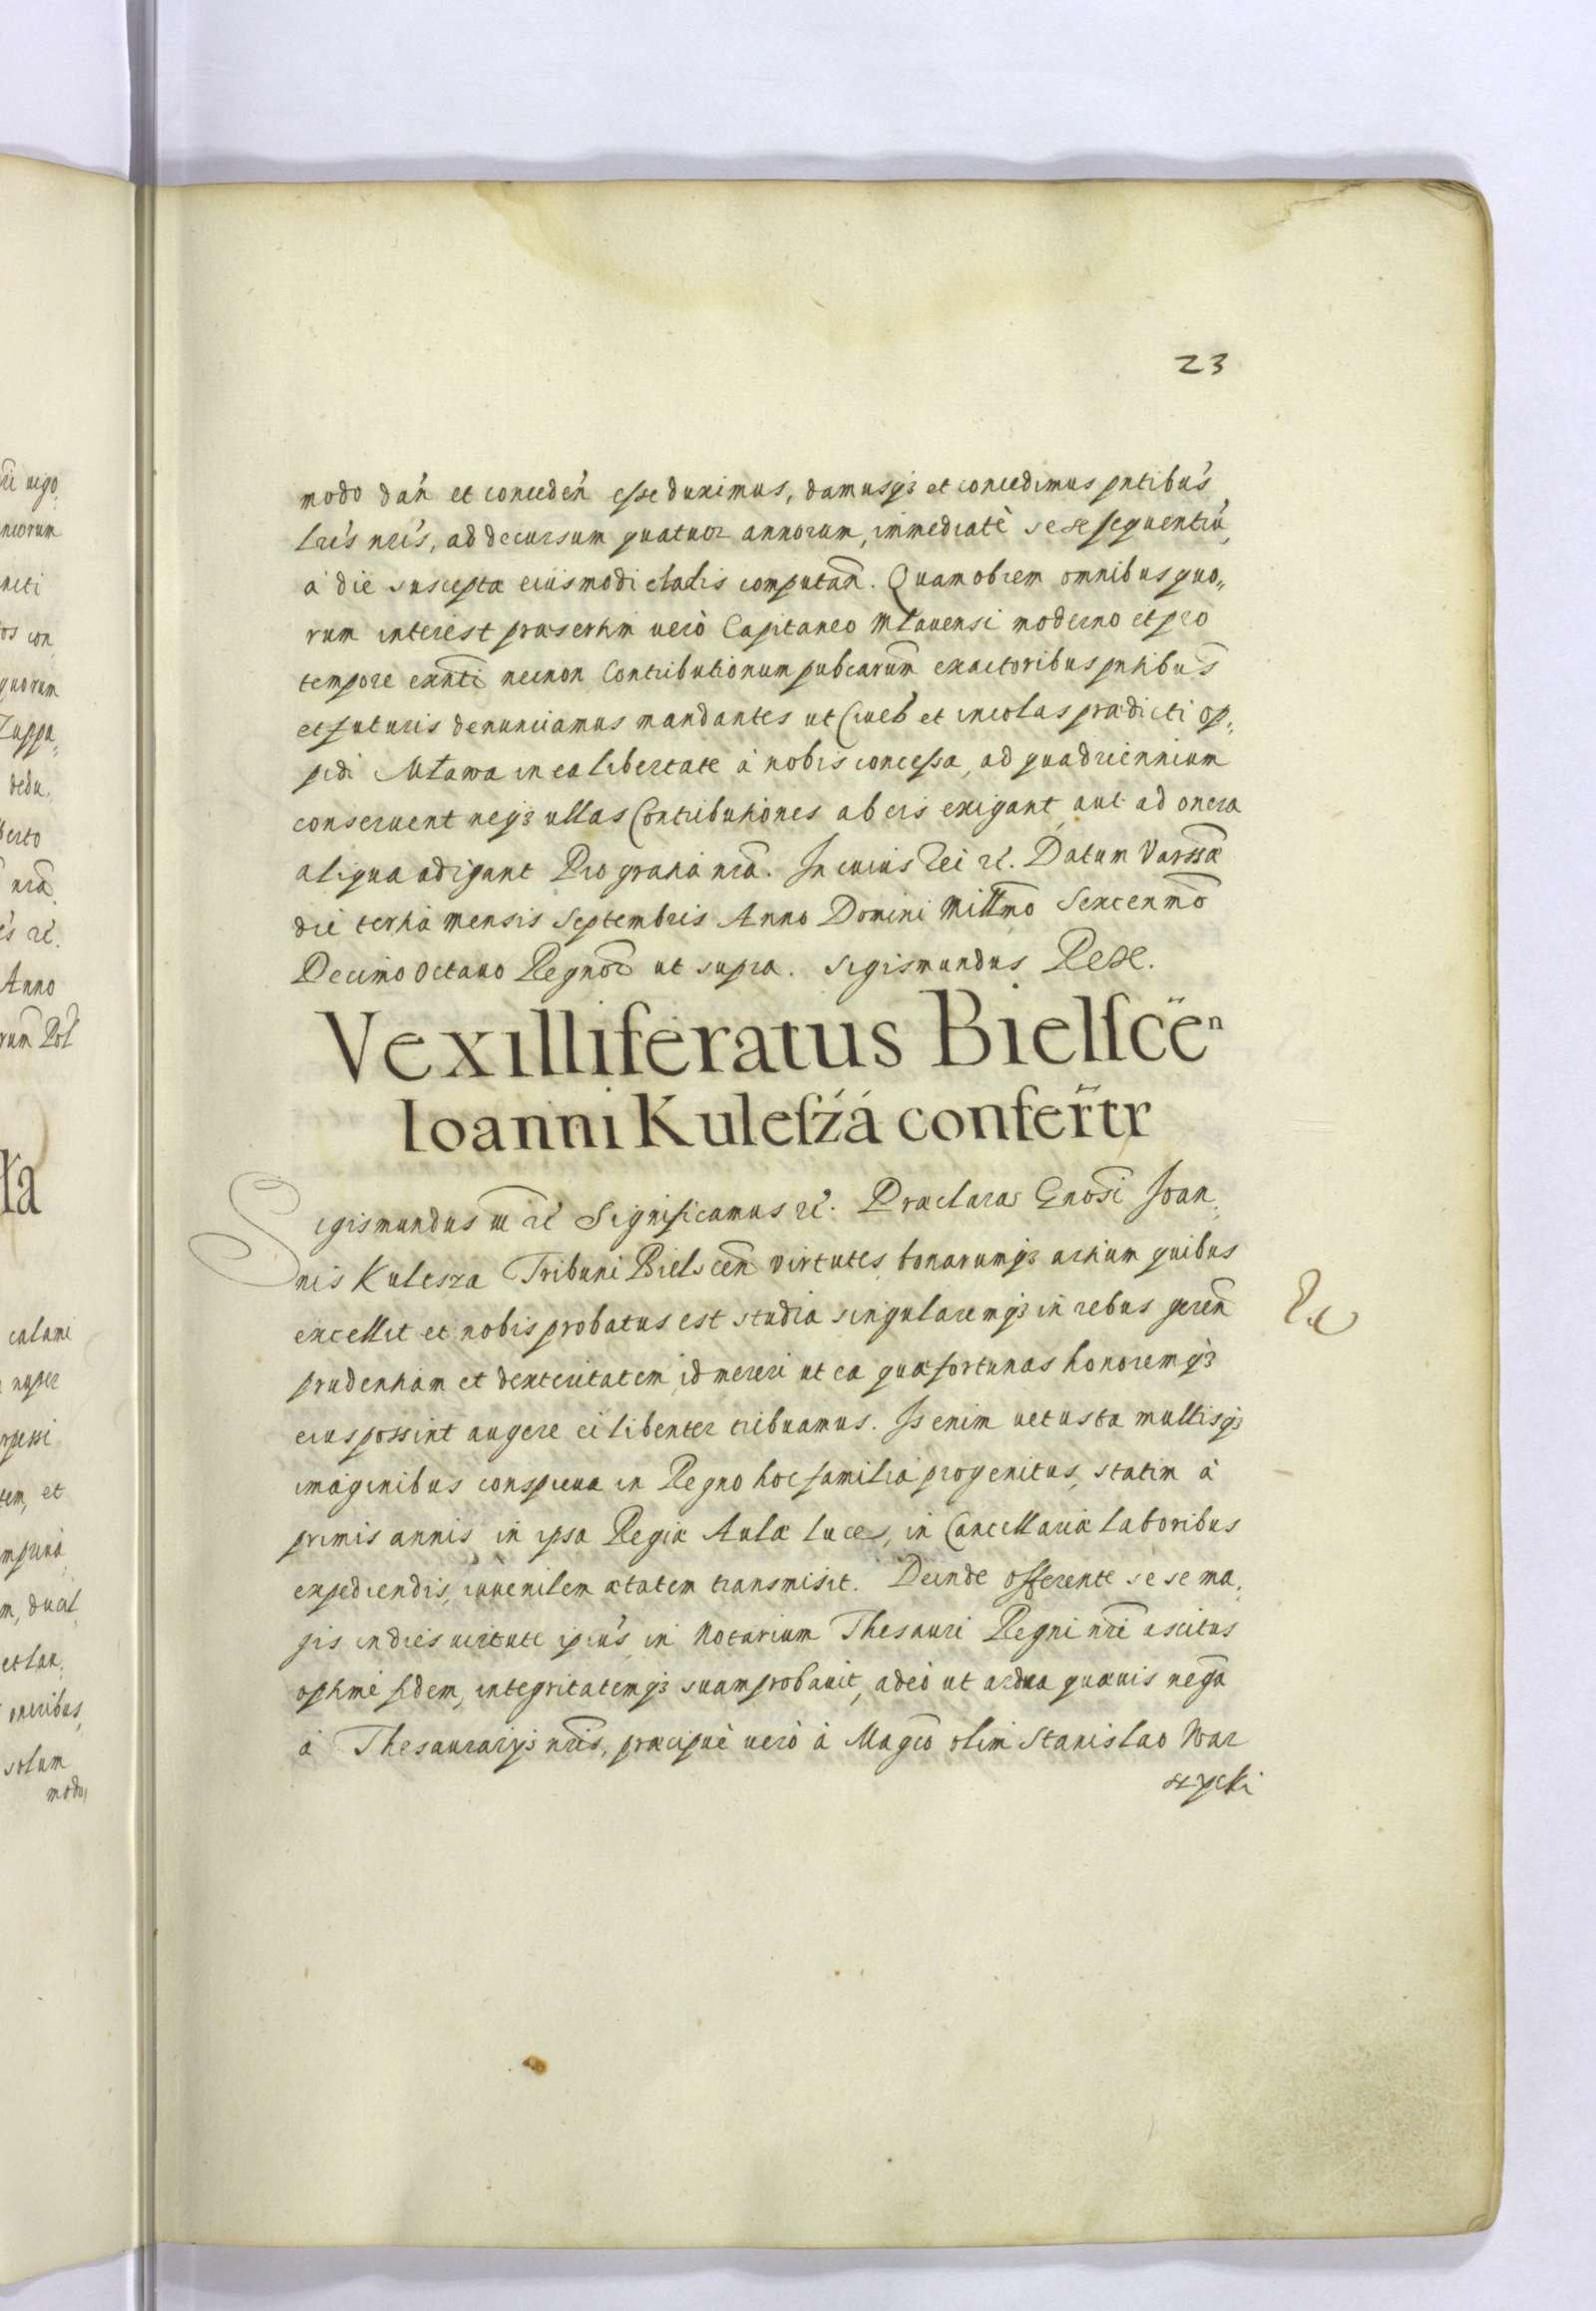 23
modo dan̄ et conceden̄ esse duximus, damusq3 et concedimus pntibus
lrĩs nrĩs, ad decursum quatuor annorum, immediatè sese sequentiũ,
à die suscepta eiusmodi cladis computan̄. Quamobrem omnibus quo„
rum interest præsertim uerò Capitaneo Mlauensi moderno et pro
tempore exn̄ti necnon Contributionum publcarum exactoribus pntibus
et futuris denunciamus mandantes ut Ciues et incolas prædicti op„
pidi Mława in ea libertate à nobis concessa, ad quadriennium
conseruent neq3 ullas Contributiones ab eis exigant aut ad onera
aliqua adigant Pro gratia nrã. In cuius rei rc̃. Datum Varssæ
die tertia mensis Septembris Anno Domini Millm̃o Sexcenm̃o
Decimo Octauo Regnor̃ ut supra. Sigismundus Rex.
Vexilliferatus Bielscen̄
Ioanni Kulesźá confer̃tr
Sigismundus III rc̃ Significamus rc̃. Præclaras Gnosi Ioan„
nis Kulesza Tribuni Bielscen̄ virtutes, bonarumq3 artium quibus
excellit et nobis probatus est studia singularemq3 in rebus geren̄
prudentiam et dexteritatem, id mereri ut ea quæ fortunas honoremq3
eius possint augere ei libenter tribuamus. Is enim uetusta multisq3
imaginibus conspicua in Regno hoc familia progenitus, statim à
primis annis, in ipsa Regiæ Aulæ luce, in Cancellaria laboribus
expediendis, iuuenilem ætatem transmisit. Deinde offerente sese ma„
gis indies uirtute ipius, in Notarium Thesauri Regni nrĩ ascitus
optimè fidem, integritatemq3 suam probauit, adeò ut ardua quæuis nega
à Thesaurarijs nrĩs, præcipuè uerò à Magco olim Stanislao War
szycki